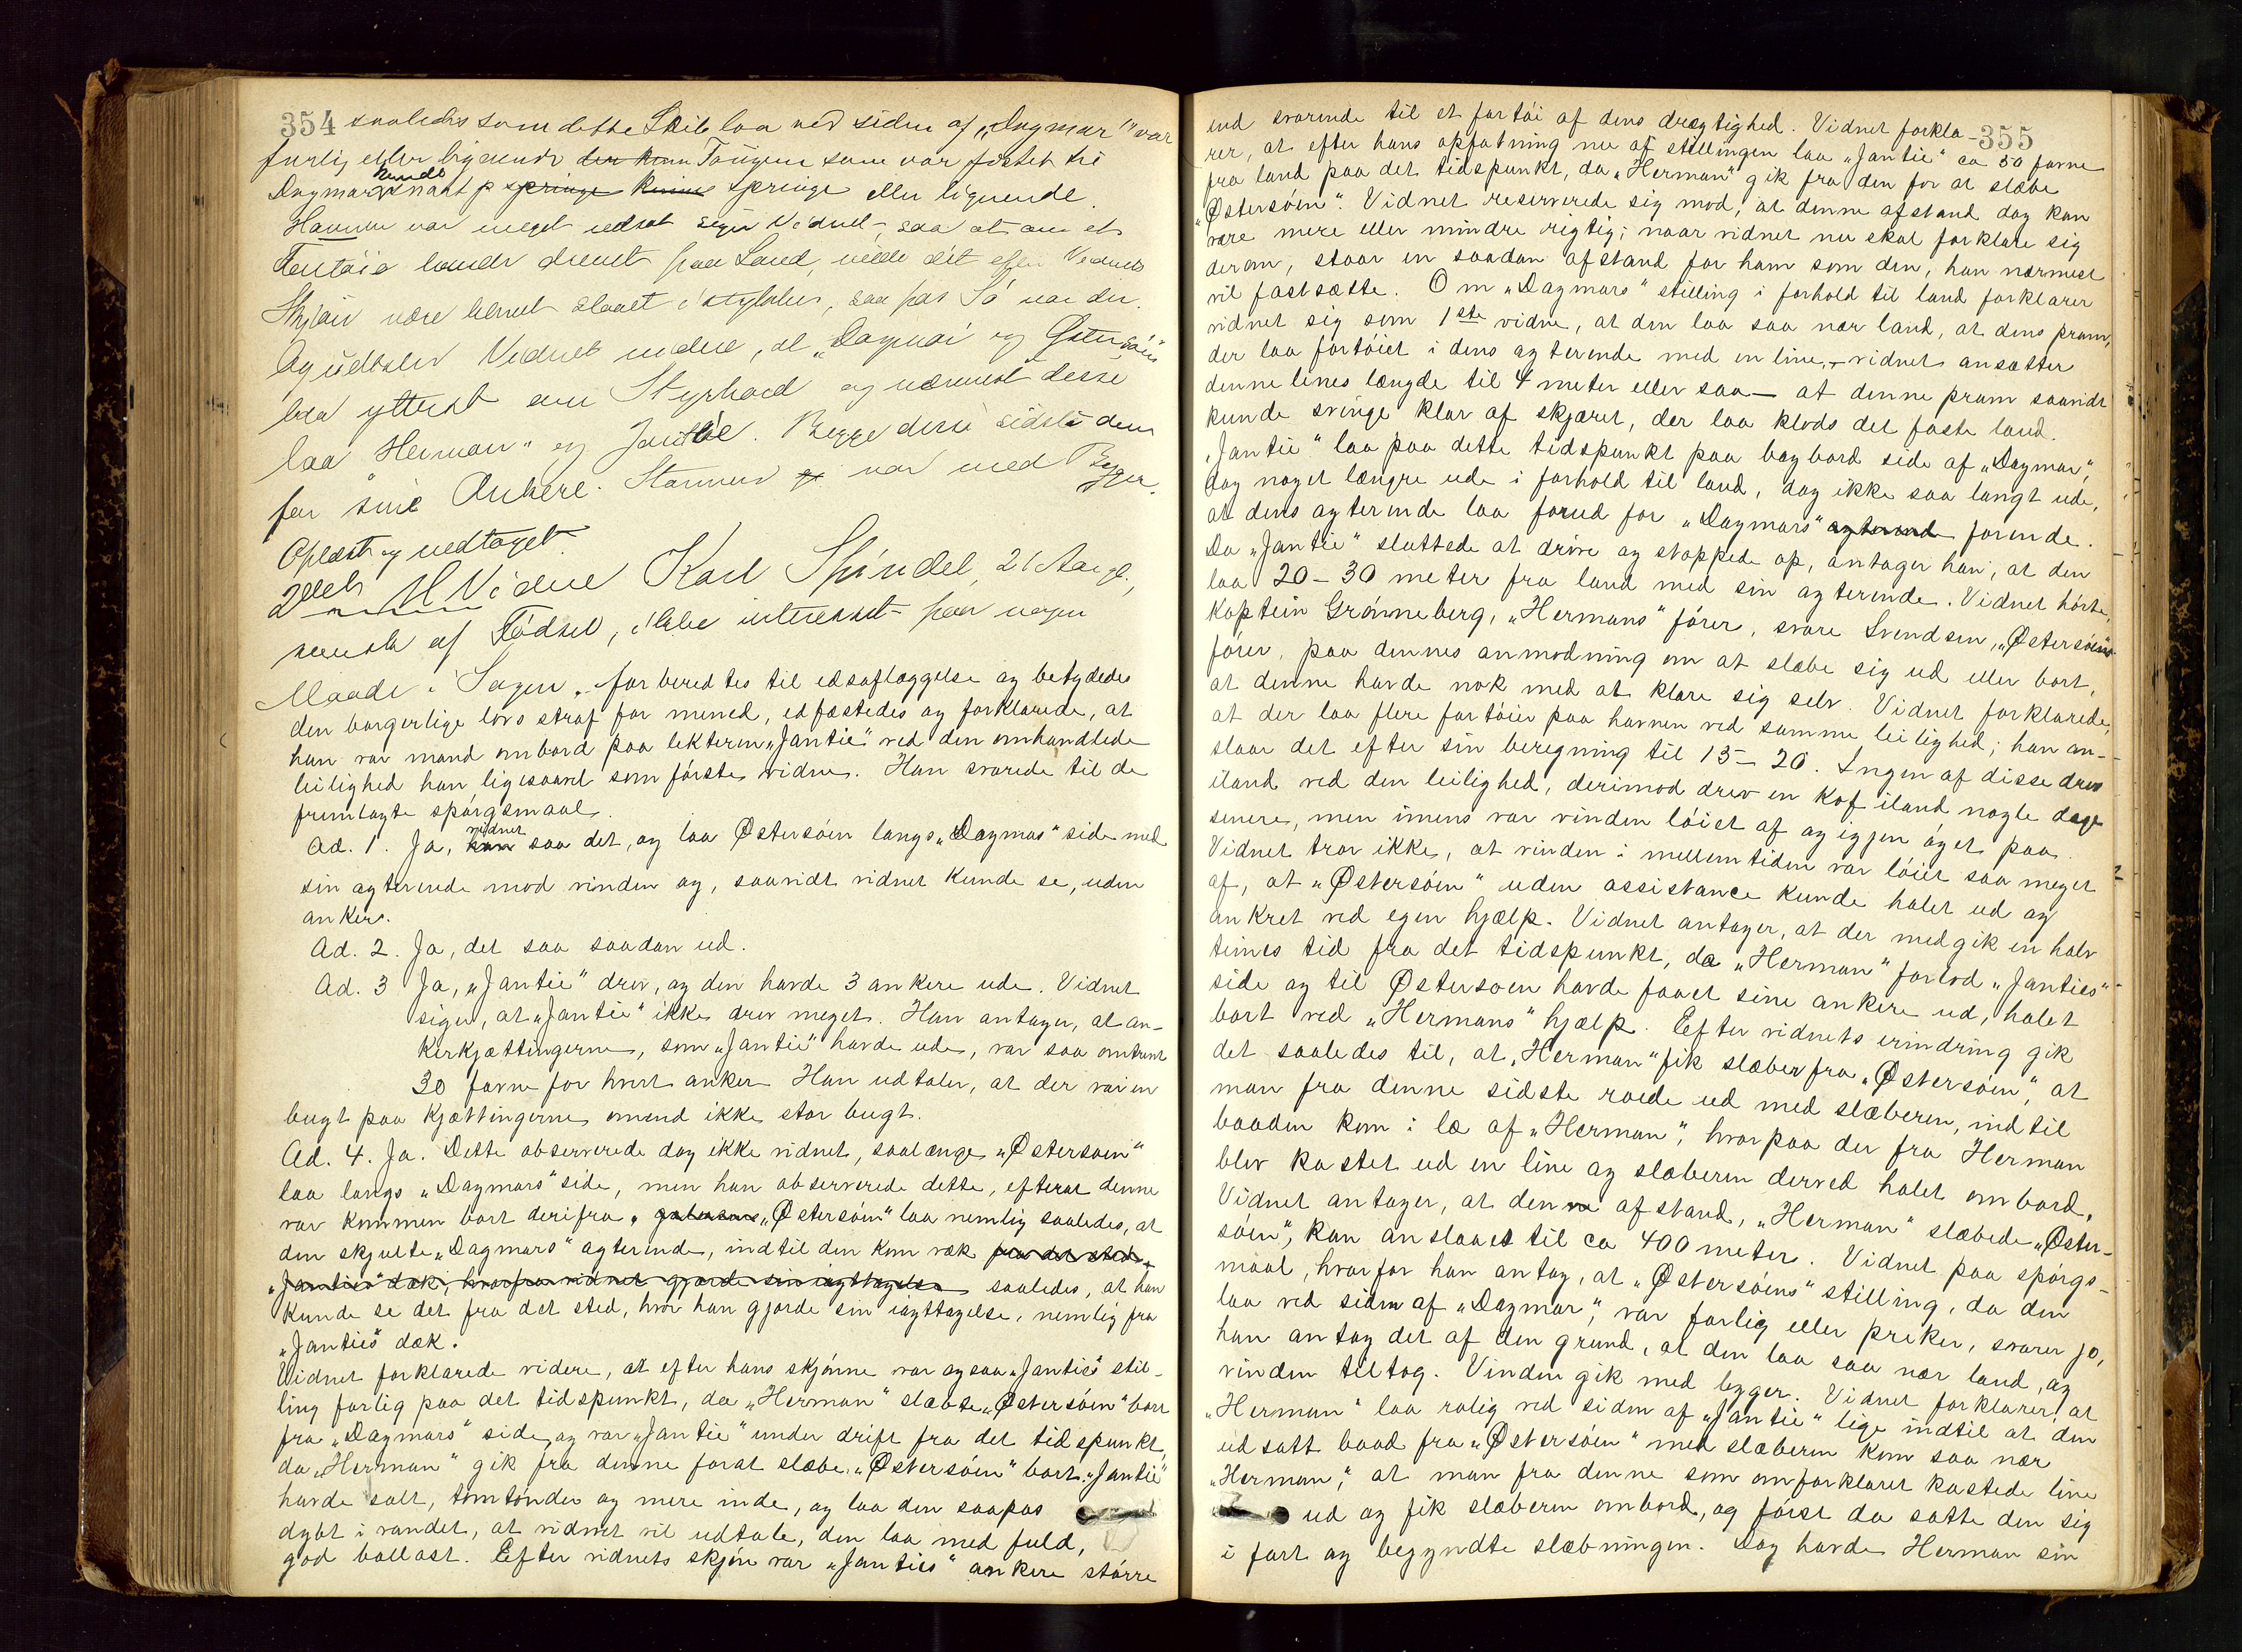 354 saaledes som dette Skib laa ved siden af „Dagmar" var
farlig eller lignende der kun Tougene som var fæstet til
Dagmar kunde snart p springe kunne springe eller lignende.
Havnen var meget udsat siger Vidnet, saa at om et
Fartöie lande drevet paa Land, vilde det efter Vidnets
Skjön være blevet slaaet i stykker, saa höi Sö var der.
Og udtaler Vidnet videre, at „Dagmar og Östersöen"
laa ytterst om Styrbord og nærmest desse
laa „Herman" og Jantie. Begge disse sidste drev
for sine Ankere. Stormen og var med Bygger.
Oplæst og vedtaget.
2det Vidne Karl Spindel, 21 Aar gl.,
svensk af Födsel, ikke interesseret paa nogen
Maade i Sagen, forberedtes til edsaflæggelse og betydedes
den borgerlige lovs straf for mened, edfæstedes og forklarede, at
han var mand ombord paa lekteren „Jantie" ved den omhandlede
leilighed han ligesaavel som første vidne. Han svarede til de
fremlagte spörgsmaal.
Ad. 1. Ja, han vidnet saa det, og laa Østersöen langs „Dagmas" side med
sin agterende mod vinden og, saavidt vidnet kunde se, uden
ankers.
Ad. 2. Ja, det saa saadan ud.
Ad. 3 Ja, „Jantie" drev, og den havde 3 ankere ude. Vidnet
siger, at „Jantie" ikke drev meget. Han antager, at an-
kerkjættingerne, som „Jantie" havde ude, var saa omtrent
30 favne for hvert anker. Han udtaler, at der var en
bugt paa kjættingerne omend ikke stor bugt.
Ad. 4. Ja. Dette observerede dog ikke vidnet, saalænge „Østersoen"
laa langs „Dagmars" side, men han observerede dette, efterat denne
var kommen bort derifra, „Østersöen" laa nemlig saaledes, at
den skjulte „Dagmars" agterende, indtil den kom væk fra det sted,
„Janties" dæk, hvorfra vidnet gjorde sin iagttagelse saaledes, at han
kunde se det fra det sted, hvor han gjorde sin iagttagelse, nemlig fra
„Janties" dæk.
Vidnet forklarede videre, at efter hans skjönne var ogsaa „Janties" stil-
ling farlig paa det tidspunkt, da „Herman" slæbte „Østersöen" bort
fra „Dagmars" side, og var „Jantie" under drift fra det tidspunkt,
da „Herman" gik fra denne forat slæbe „Østersöen" bort. „Jantie"
havde salt, tomtönder og mere inde, og laa den saapas
dybt i vandet, at vidnet vil udtale, den laa med fuld,
god ballast. Efter vidnets skjön var „Janties" ankere större
355
end svarende til et fartöi af dens drægtighed. Vidnet forkla-
rer, at efter hans opfatning nu af stillingen laa „Jantie" ca 50 favne
fra land paa det tidspunkt, da „Herman" gik fra den for at slæbe
„Østersöen". Vidnet reserverede sig mod, at denne afstand dog kan
være mere eller mindre rigtig; naar vidnet nu skal forklare sig
derom, staar en saadan afstand for ham som den, han nærmest
vil fastsætte. Om „Dagmars" stilling i forhold til land forklarer
vidnet sig som 1ste vidne, at den laa saa nær land, at dens pram,
der laa fortöiet i dens agterende med en line, – vidnet ansætter
denne lines længde til 4 meter eller saa – at denne pram saavidt
kunde svinge klar af skjæret, der laa klods det faste land.
„Jantie" laa paa dette tidspunkt paa bagbord side af „Dagmar",
dog noget længre ude i forhold til land, dog ikke saa langt ude,
at dens agterende laa forud for „Dagmars" agterende forende.
Da „Jantie" sluttede at drive og stoppede op, antager han, at den
laa 20–30 meter fra land med sin agterende. Vidnet hörte,
kaptein Grönneberg, „Hermans" förer, svare Svendsen, „Østersöens"
förer, paa dennes anmodning om at slæbe sig ud eller bort,
at denne havde nok med at klare sig selv. Vidnet forklarede,
at der laa flere fartöier paa havnen ved samme leilighed; han an-
slaar det efter sin beregning til 15–20. Ingen af disse drev
iland ved den leilighed, derimod drev en kof iland nogle dage
senere, men imens var vinden löiet af og igjen öget paa.
Vidnet tror ikke, at vinden i mellemtiden var löiet saa meget
af, at „Østersöen" uden assistance kunde halet ud og
ankret ved egen hjælp. Vidnet antager, at der medgik en halv
times tid fra det tidspunkt, da „Herman" forlod „Janties"
side og til Østersoen havde faaet sine ankere ud, halet
bort ved „Hermans" hjælp. Efter vidnets erindring gik
det saaledes til, at „Herman" fik slæber fra „Østersöen", at
man fra denne sidste roede ud med slæberen, indtil
baaden kom i læ af „Herman", hvorpaa der fra Herman
blev kastet ud en line og slæberen derved halet ombord.
Vidnet antager, at denne afstand, „Herman" slæbede „Øster-
söen", kan anslaaes til ca 400 meter. Vidnet paa spörgs-
maal, hvorfor han antog, at „Østersöens" stilling, da den
laa ved siden af „Dagmar", var farlig eller prekær, svarer jo,
han antog det af den grund, at den laa saa nær land, og
vinden tiltog. Vinden gik med byger. Vidnet forklarer, at
„Herman" laa rolig ved siden af „Jantie" lige indtil at den
udsatt baad fra „Østersöen" med slæberen kom saa nær
„Herman", at man fra denne som omforklaret kastede line
ud og fik slæberen ombord, og förse da satte den sig
i fart og begyndte slæbningen. Dog havde Herman sin